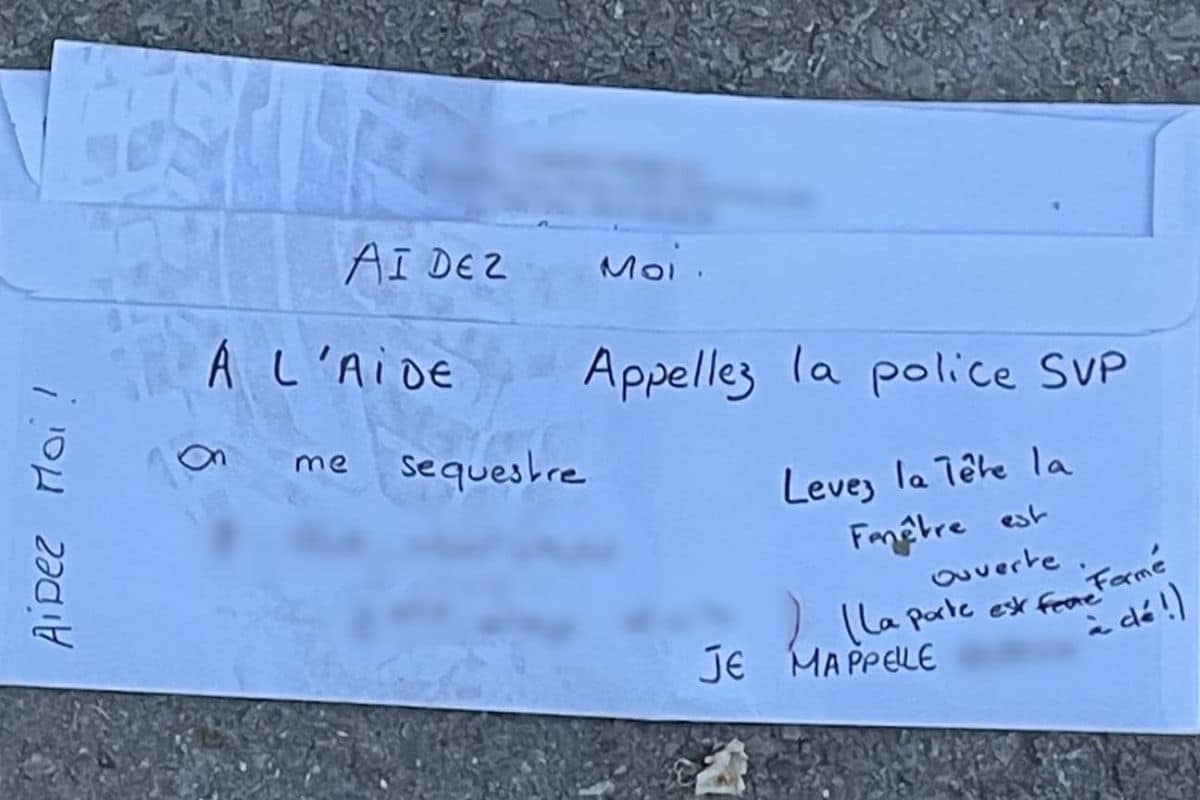 AIDEZ MOI.
A L'AIDE Appellez la police SVP
On me sequestre
Levez la Tête la
Fenêtre est
ouverte.
(La porte est fermé Fermé
à clé!)
JE MAPPELLE
AIDEZ MOI!